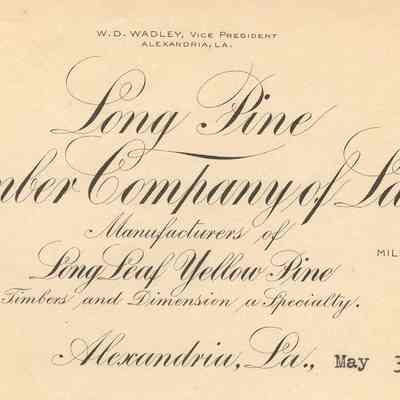 W. D. WADLEY, VICE PRESIDENT
ALEXANDRIA, LA.
Long Pine
mber Company of La
Manufacturers of
MIL
Long Leaf Yellow Pine
Timbers and Dimension a Specialty.
Alexandria, La., May 3